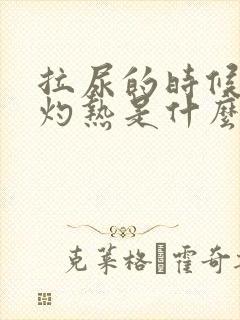 拉尿的时候
灼熱是什麼
克莱格霍奇